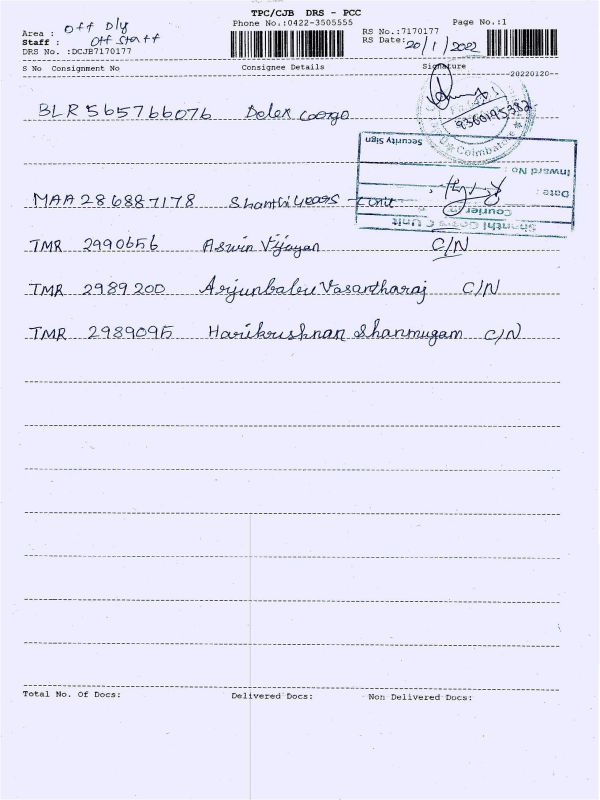 TPC/CJB DRS - PCC
Phone No.:0422-3505555
Page No.:1
Area : Off Dly
Staff : Off Staff
DRS No. :DCJB7170177
RS No.:7170177
RS Date: 20/1/2022
S No Consignment No Consignee Details Signature
--20220120--
BLR 565766076 Delex Cargo
9360195382
Coimbatore
Security Sign
Inward No :
Date :
Courier
Shanthi Gears C Unit
MAA 286887178 Shanthi gears - C unit
TMR 2990656 Aswin Vijayan C/N
TMR 2989200 Arjunbabu Vasantharaj C/N
TMR 2989095 Harikrushnan Shanmugam C/N
Total No. Of Docs: Delivered Docs: Non Delivered Docs: